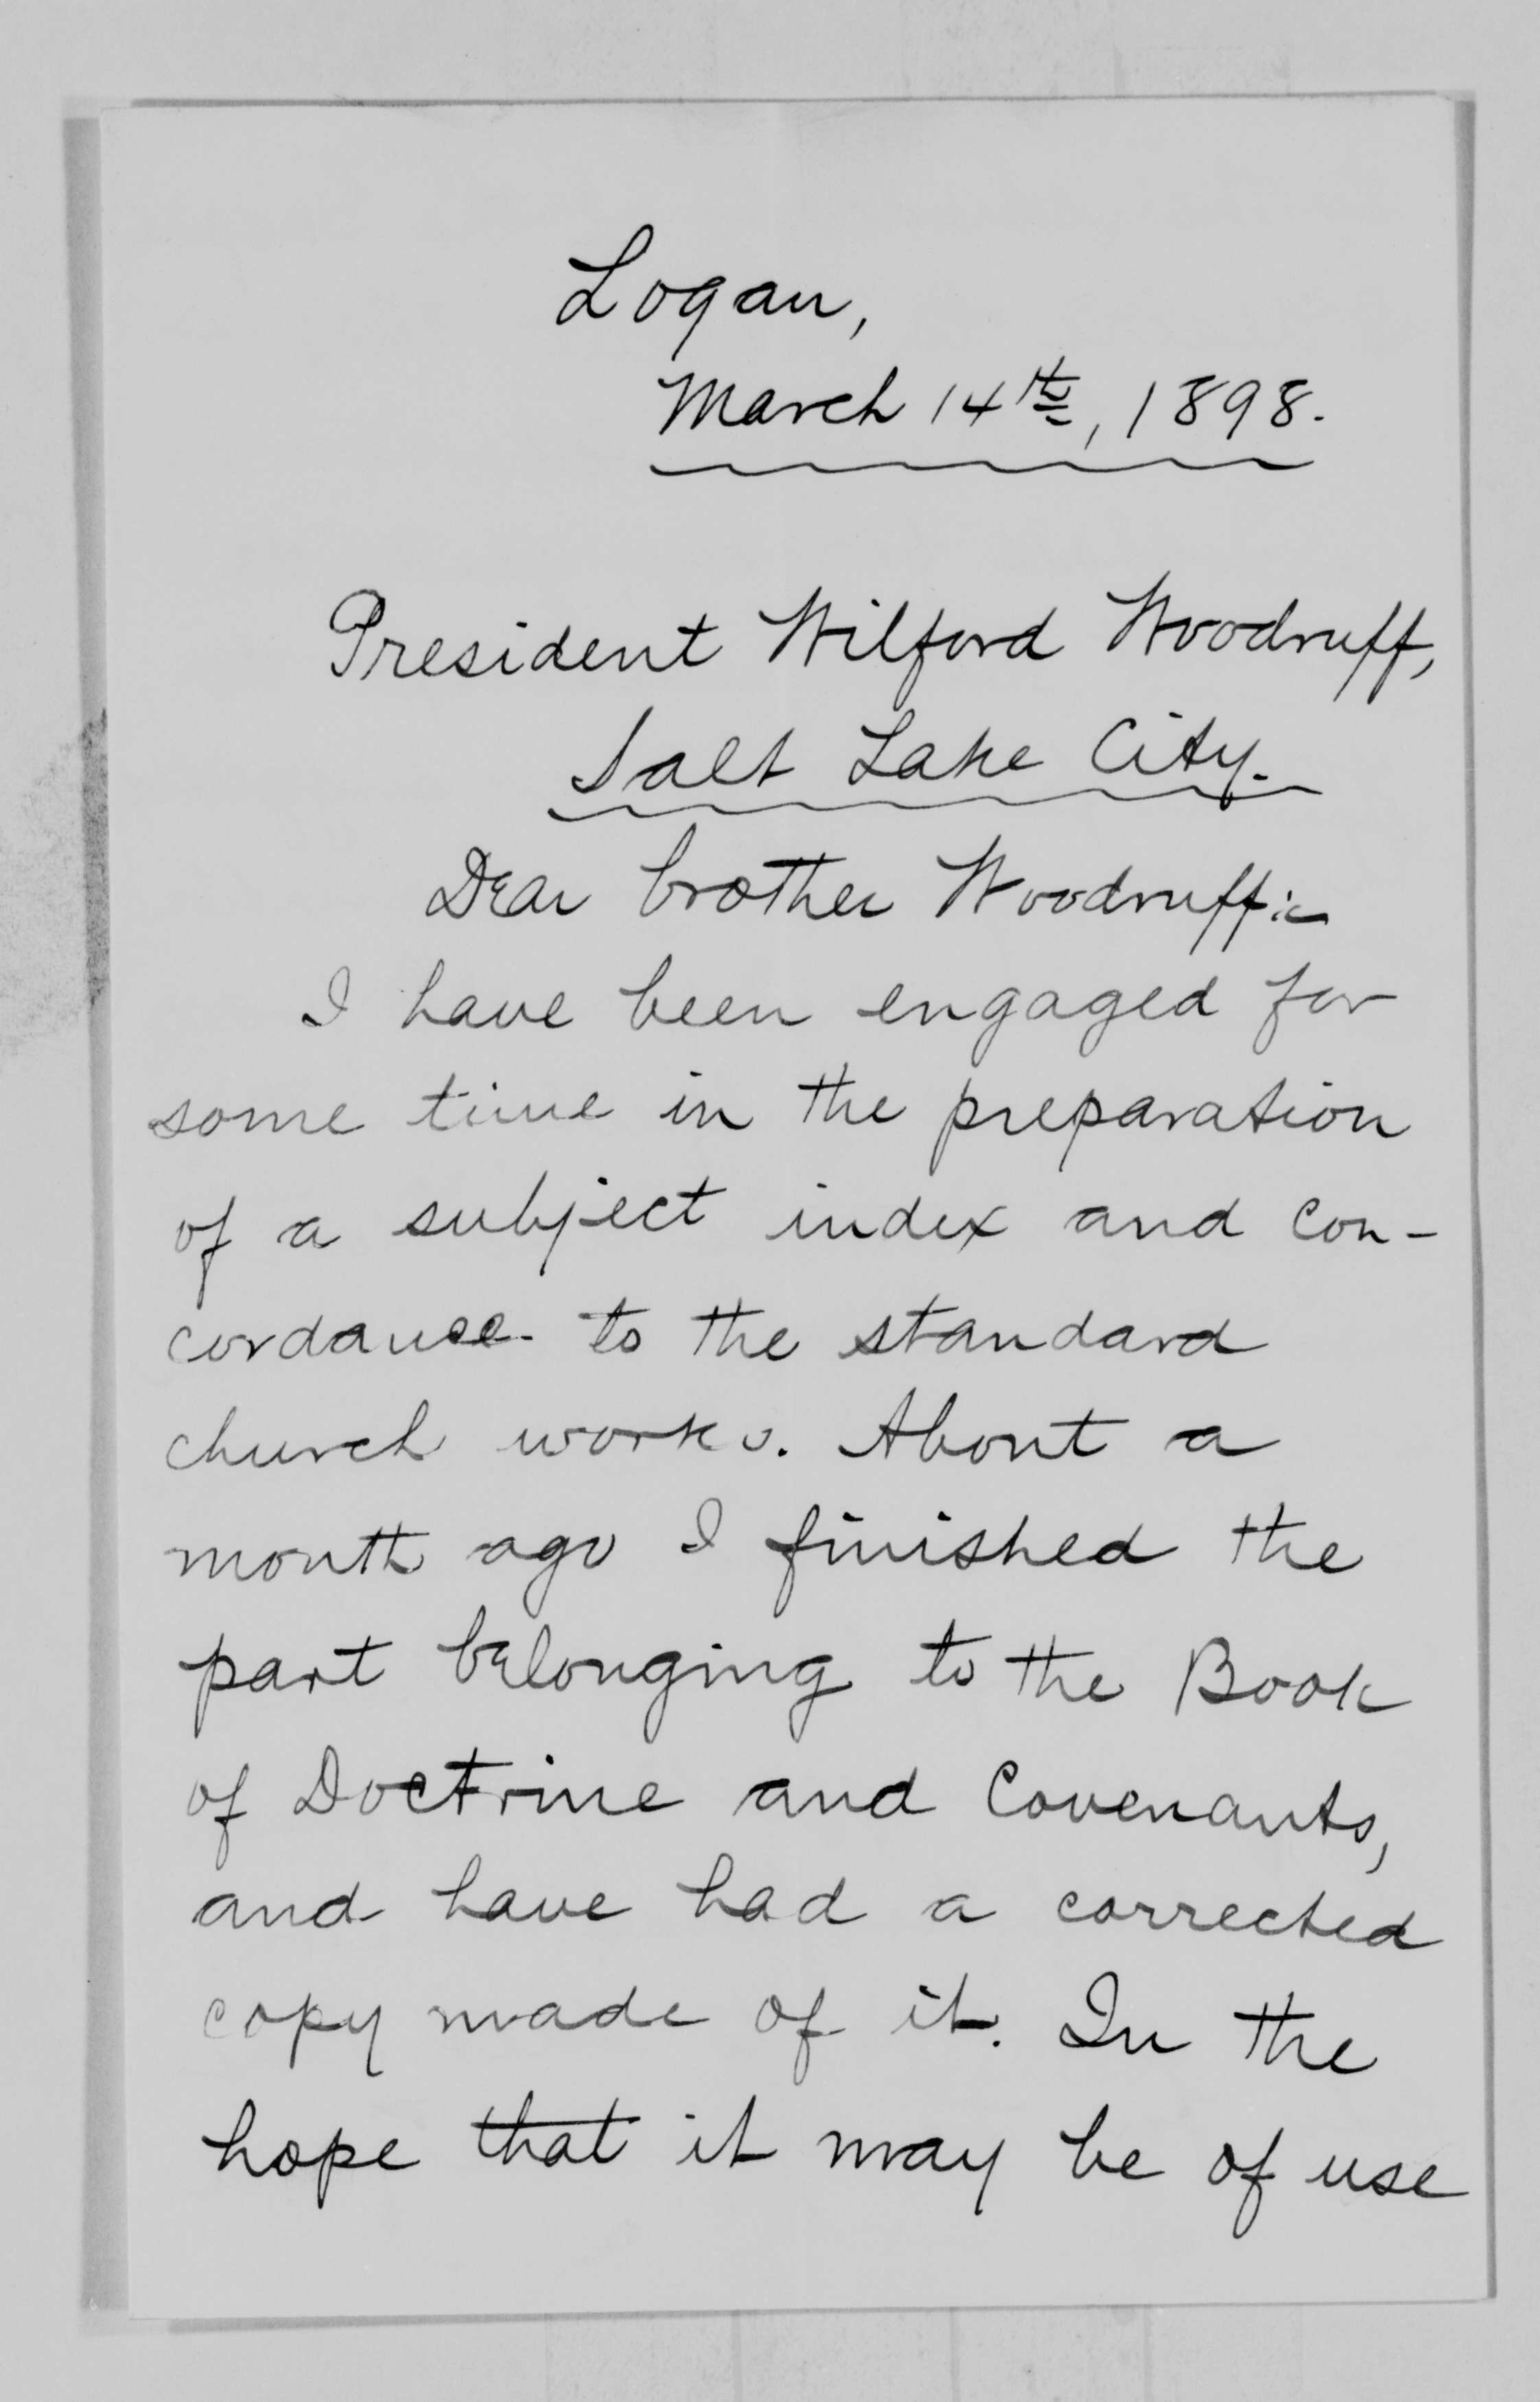 Logan,
March 14th, 1898.
President Wilford Woodruff,
Salt Lake City.
Dear brother Woodruff:-
I have been engaged for
some time in the preparation
of a subject index and con-
cordance to the standard
church works. About a
month ago I finished the
part belonging to the Book
of Doctrine and Covenants,
and have had a corrected
copy made of it. In the
hope that it may be of use